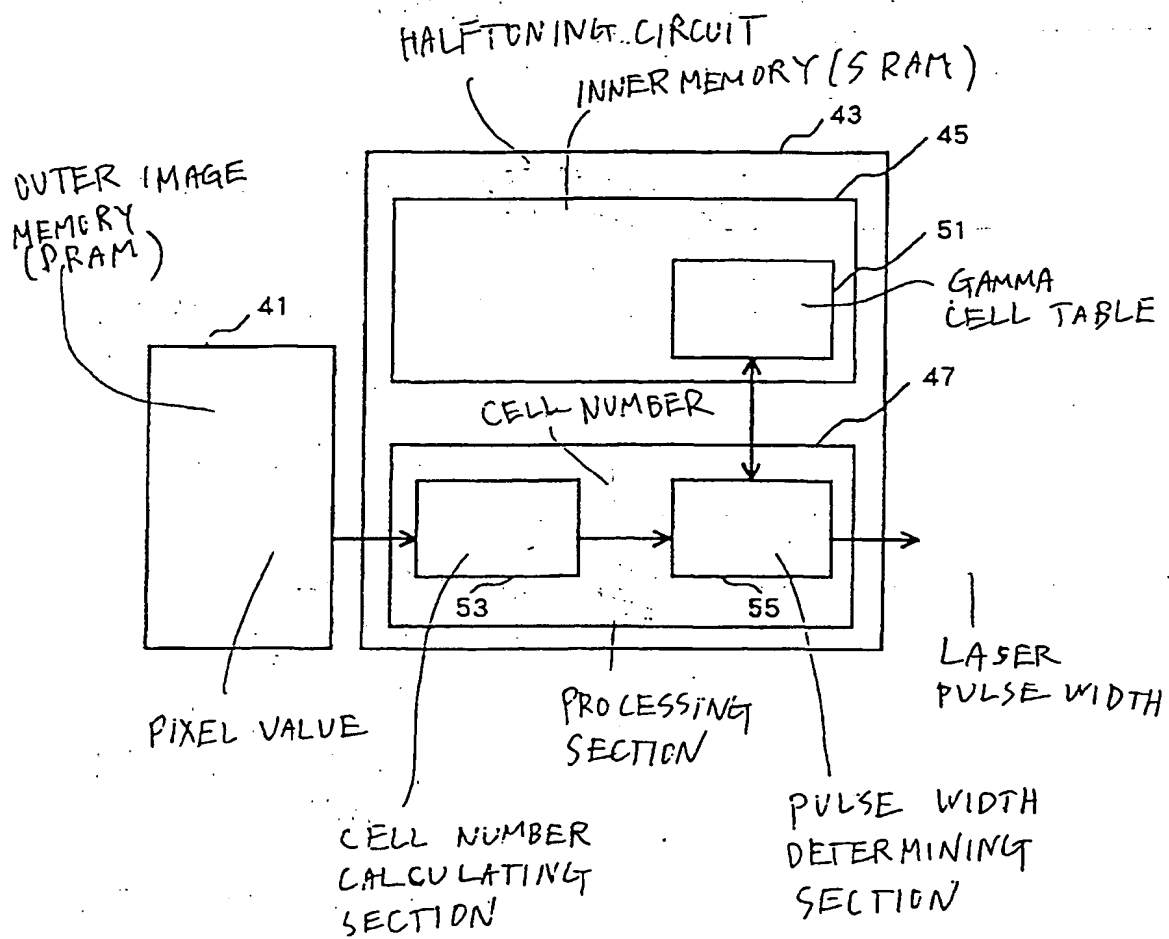 HALFTONING CIRCUIT
INNER MEMORY (SRAM)
43
45
OUTER IMAGE
MEMORY
(DRAM)
51
GAMMA
CELL TABLE
41
47
CELL NUMBER
53
55
LASER
PULSE WIDTH
PIXEL VALUE
PROCESSING
SECTION
CELL NUMBER
CALCULATING
SECTION
PULSE WIDTH
DETERMINING
SECTION